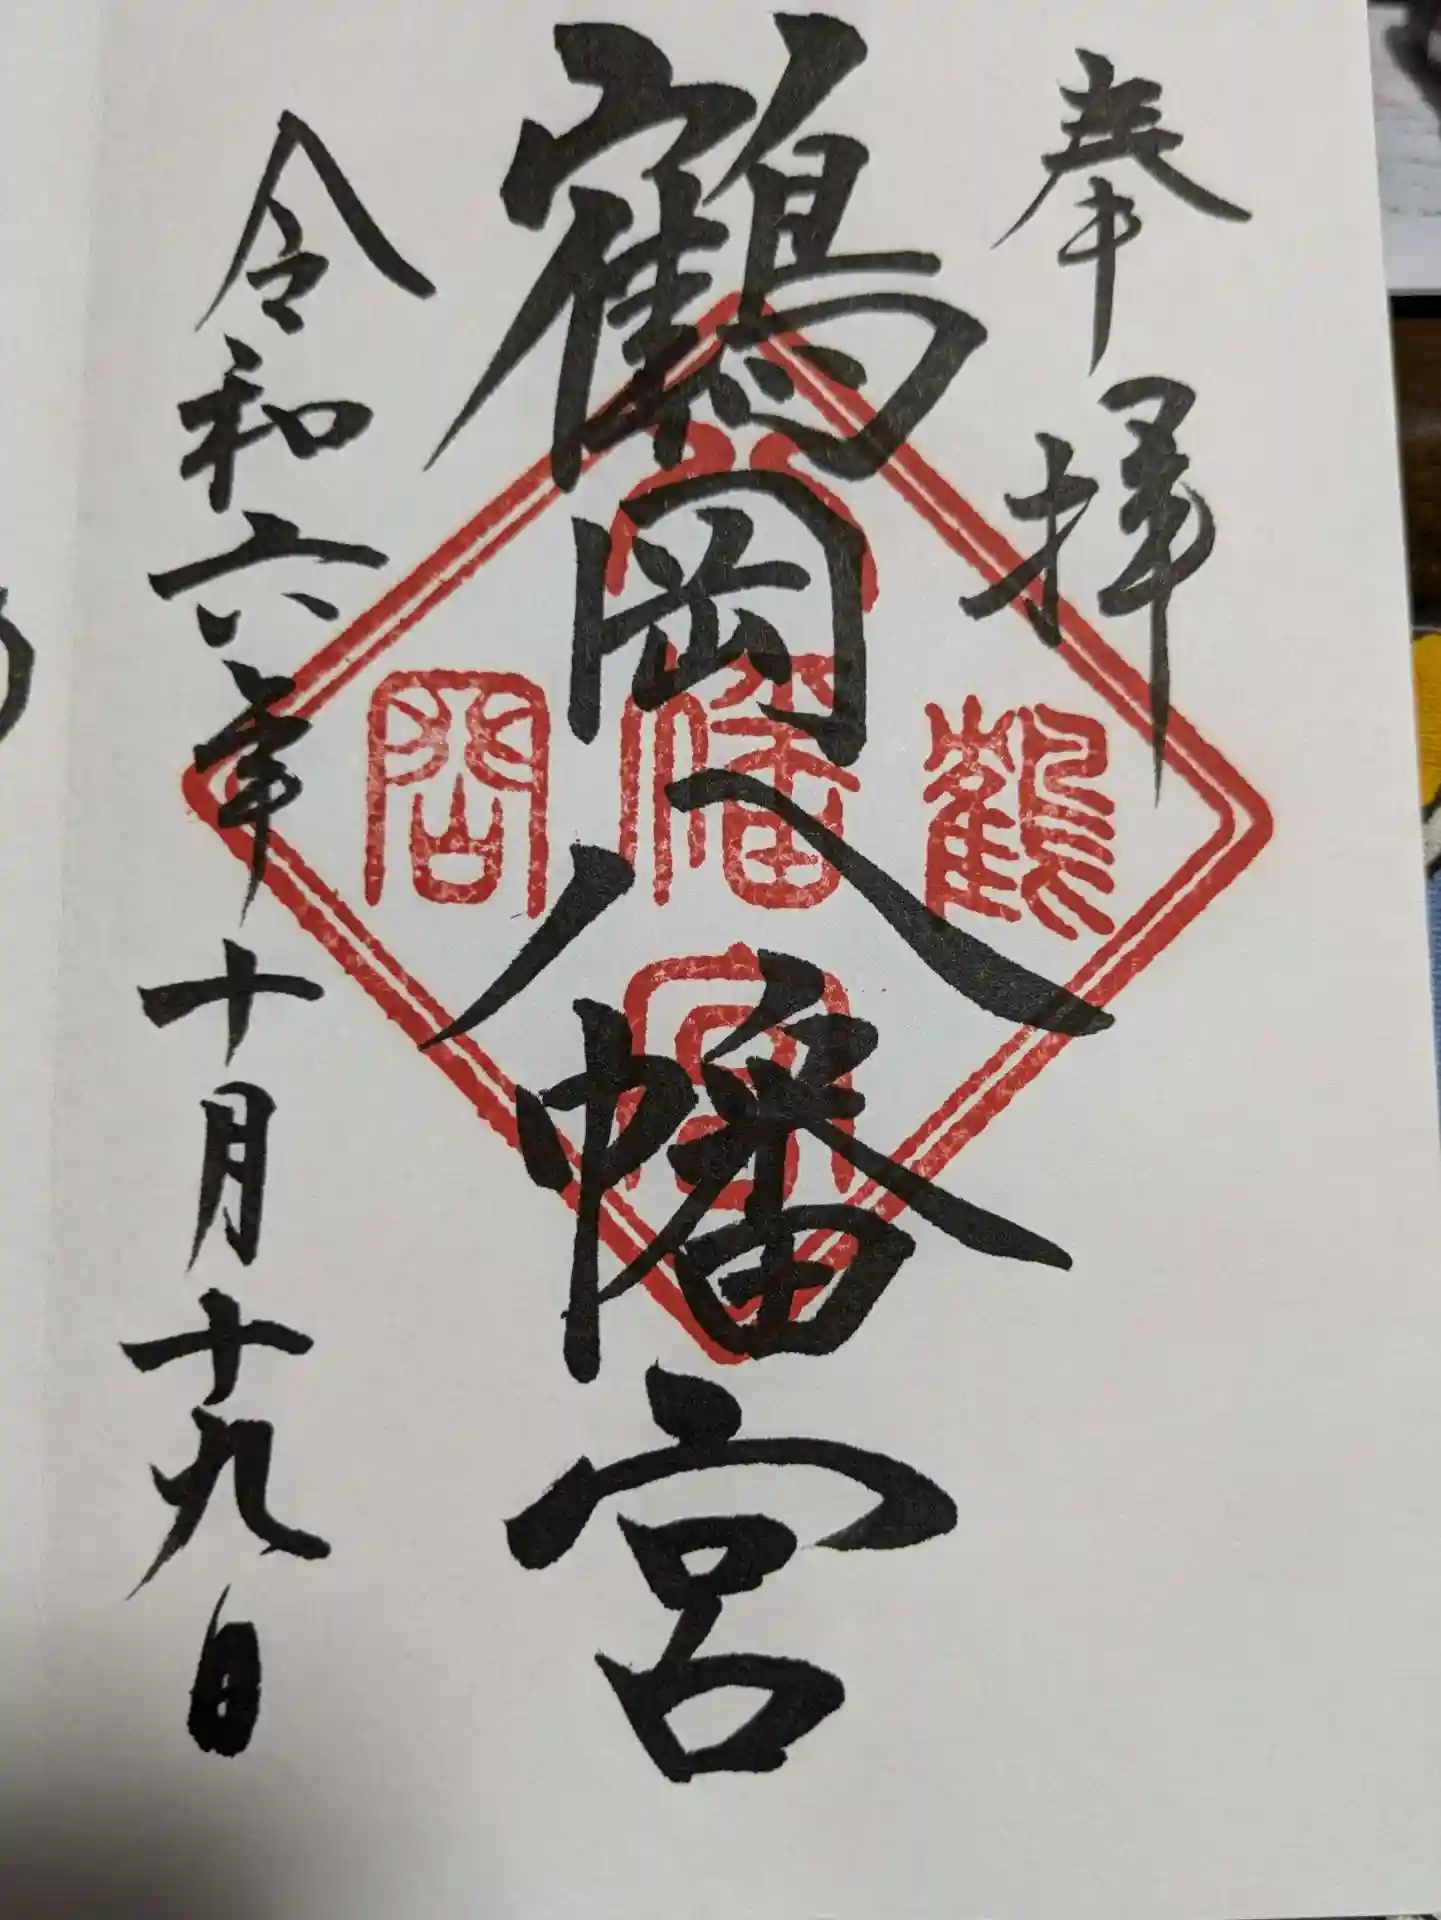 奉拝
鶴岡八幡宮
鶴
八
幡
宮
岡
令和六年十月十九日